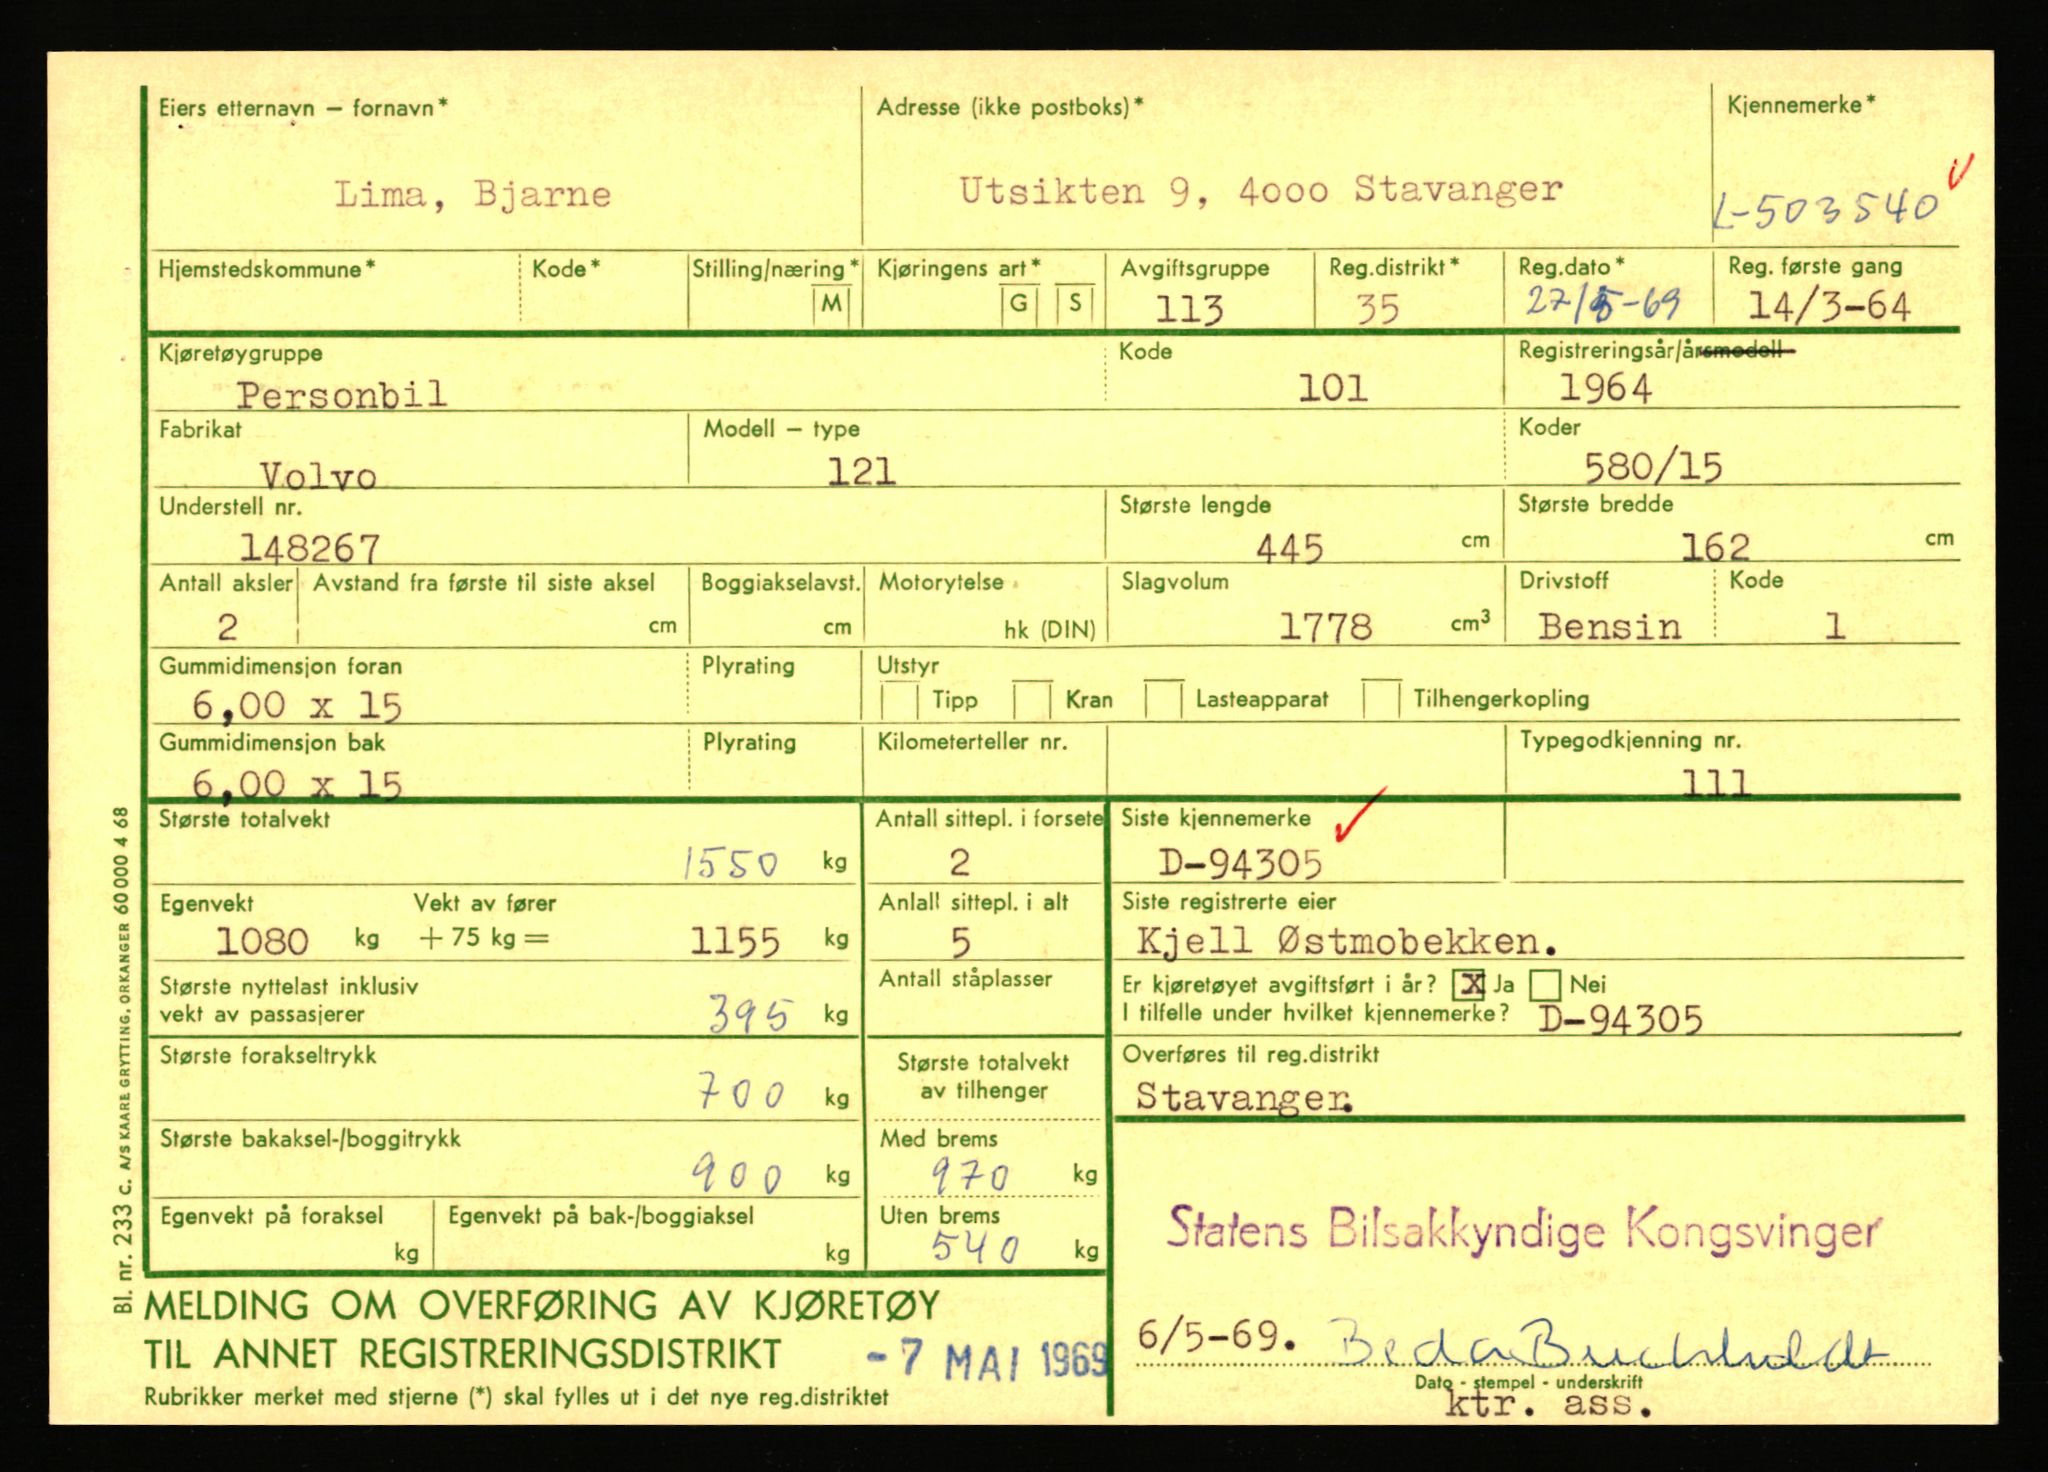 Eiers etternavn – fornavn*
Lima, Bjarne
Adresse (ikke postboks)*
Utsikten 9, 4000 Stavanger
Kjennemerke*
L-503540
Hjemstedskommune*
Kode*
Stilling/næring*
M
Kjøringens art*
G S
Avgiftsgruppe
113
Reg.distrikt*
35
Reg.dato*
27/5-69
Reg. første gang
14/3-64
Kjøretøygruppe
Personbil
Kode
101
Registreringsår/årsmodell
1964
Fabrikat
Volvo
Modell – type
121
Koder
580/15
Understell nr.
148267
Største lengde
445 cm
Største bredde
162 cm
Antall aksler
2
Avstand fra første til siste aksel
cm
Boggiakselavst.
cm
Motorytelse
hk (DIN)
Slagvolum
1778 cm³
Drivstoff
Bensin
Kode
1
Gummidimensjon foran
6,00 x 15
Plyrating
Utstyr
Tipp Kran Lasteapparat Tilhengerkopling
Gummidimensjon bak
6,00 x 15
Plyrating
Kilometerteller nr.
Typegodkjenning nr.
111
Største totalvekt
1550 kg
Antall sittepl. i forsete
2
Siste kjennemerke
D-94305
Egenvekt
1080 kg
Vekt av fører
+ 75 kg =
1155 kg
Anlall sittepl. i alt
5
Siste registrerte eier
Kjell Østmobekken.
Største nyttelast inklusiv
vekt av passasjerer
395 kg
Antall ståplasser
Er kjøretøyet avgiftsført i år? X Ja Nei
I tilfelle under hvilket kjennemerke? D-94305
Største forakseltrykk
700 kg
Største totalvekt
av tilhenger
Overføres til reg.distrikt
Stavanger.
Største bakaksel-/boggitrykk
900 kg
Med brems
970 kg
Egenvekt på foraksel
kg
Egenvekt på bak-/boggiaksel
kg
Uten brems
540 kg
Statens Bilsakkyndige Kongsvinger
MELDING OM OVERFØRING AV KJØRETØY
TIL ANNET REGISTRERINGSDISTRIKT
- 7 MAI 1969
6/5-69. Beda Buchholdt
Dato - stempel - underskrift
ktr. ass.
Rubrikker merket med stjerne (*) skal fylles ut i det nye reg.distriktet
Bl. nr. 233 C. A/S KAARE GRYTTING, ORKANGER 60 000 4 68